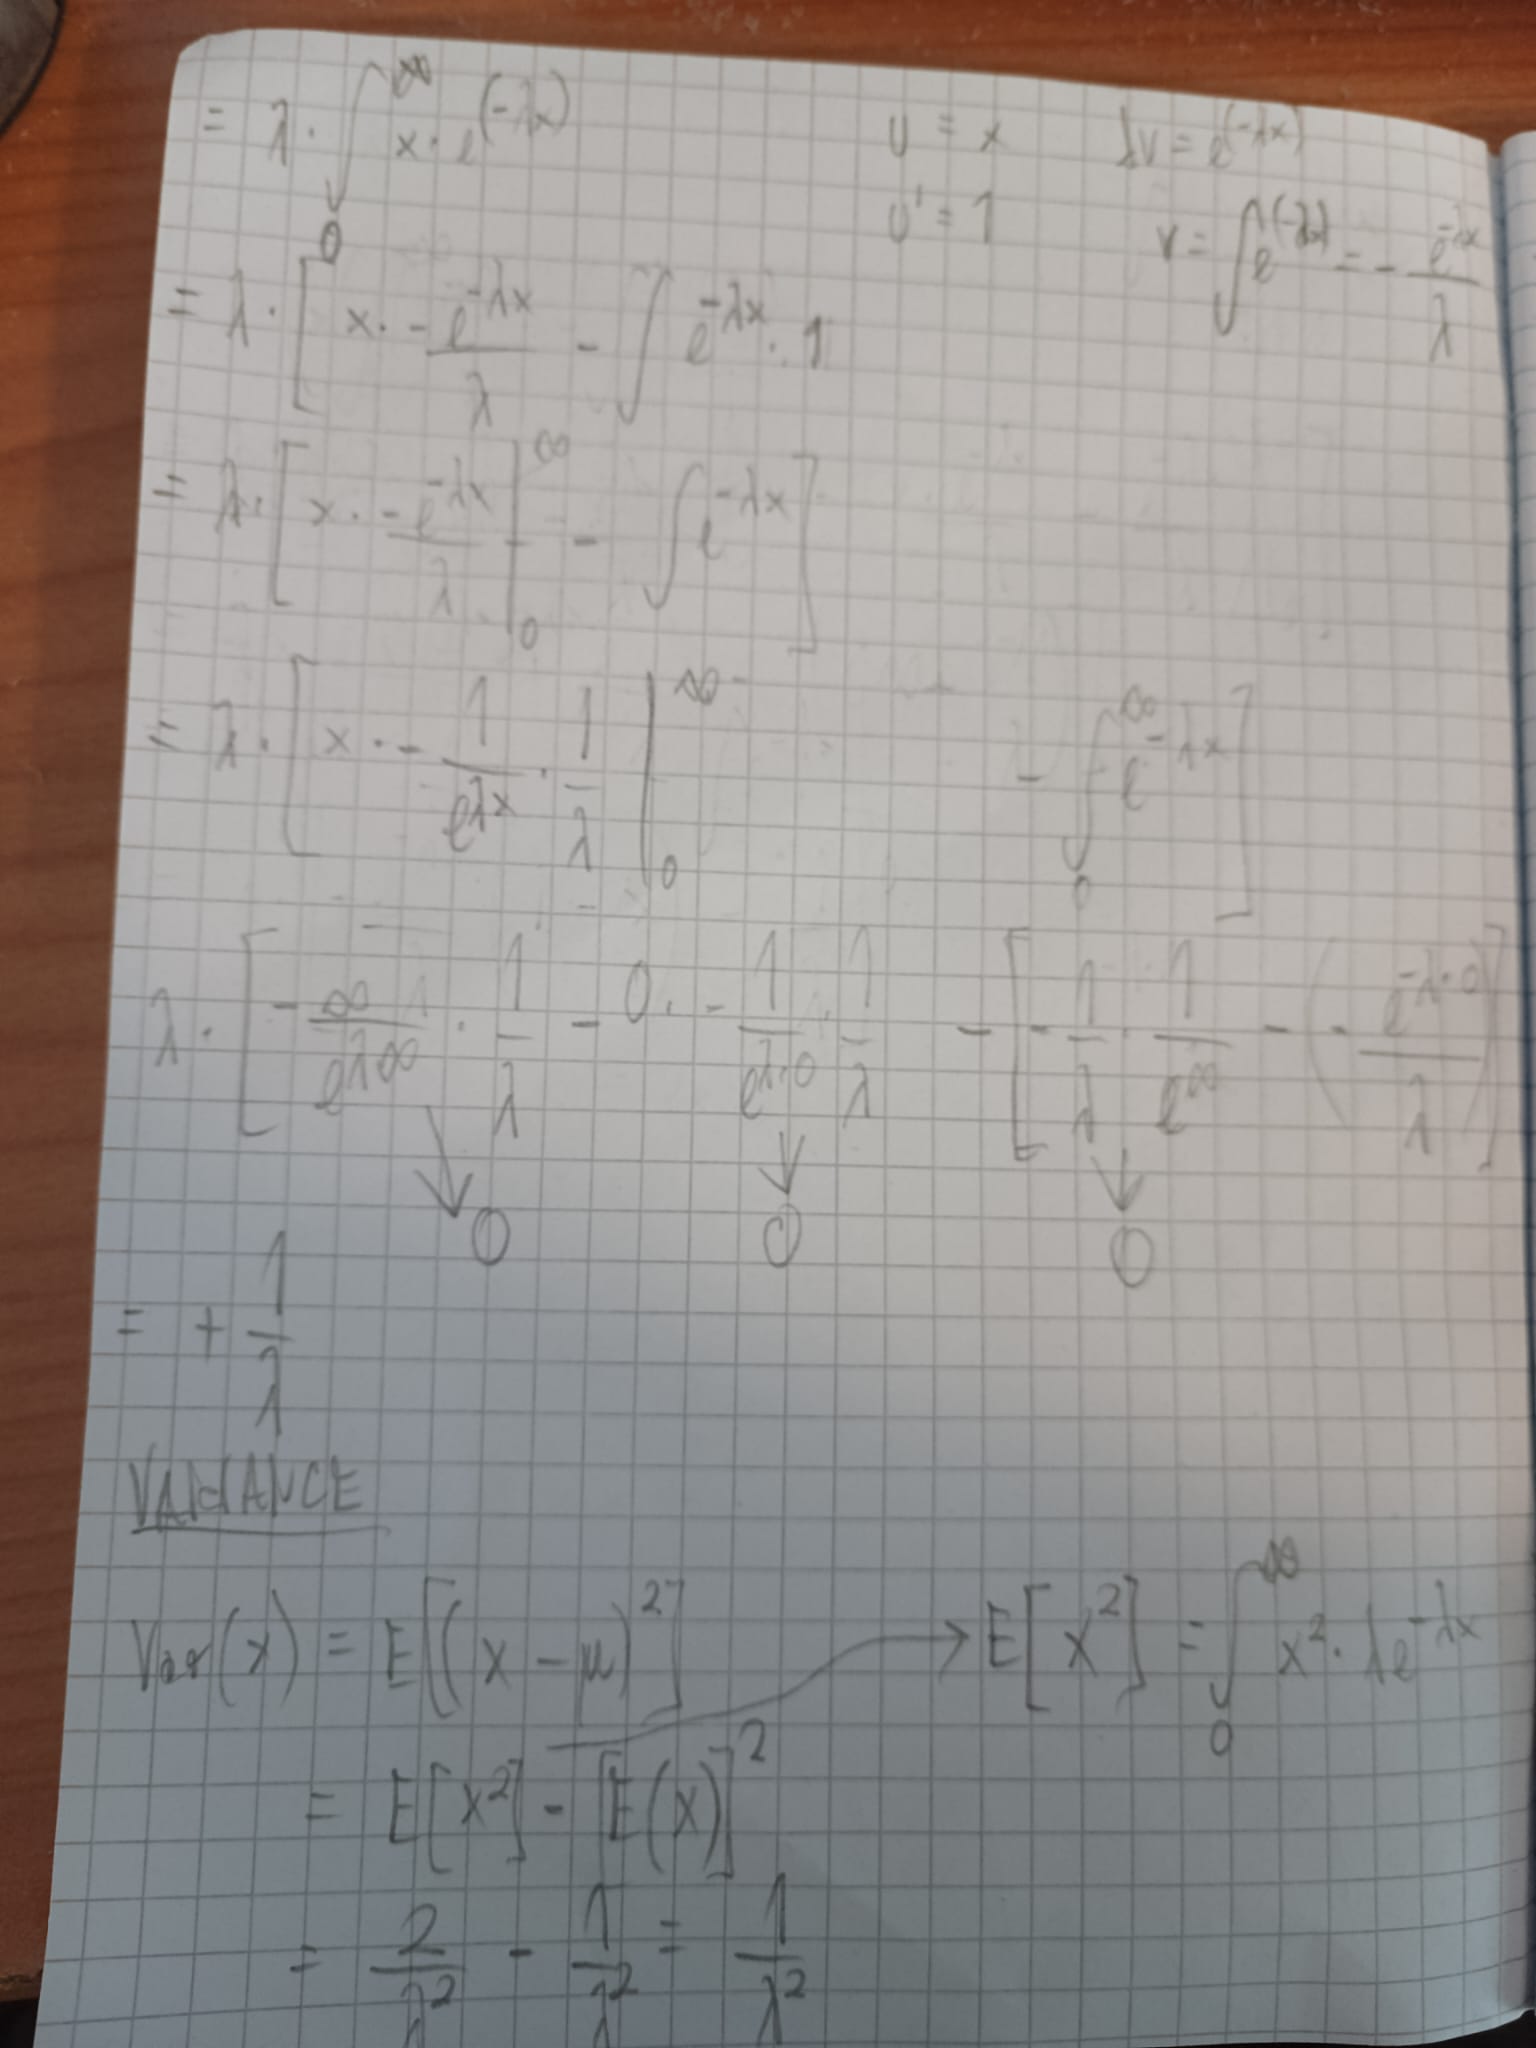 = λ · ∫₀^∞ x · e^(-λx)    u = x    dv = e^(-λx)
u' = 1    v = ∫ e^(-λx) = - e^-λx / λ
= λ · [ x · -e^-λx / λ - ∫ e^-λx · 1
= λ · [ x · -e^-λx / λ |₀^∞ - ∫ e^-λx ]
= λ · [ x · - 1/e^λx · 1/λ |₀^∞ - ∫₀^∞ e^-λx ]
λ · [ - ∞/e^λ∞ · 1/λ - 0 · - 1/e^λ·0 · 1/λ - [ - 1/λ · 1/e^∞ - ( - e^-λ·0 / λ ) ]
↓ 0    ↓ 0    ↓ 0
= + 1/λ
VARIANCE
Var(x) = E[(x - μ)²]    → E[x²] = ∫₀^∞ x² · λe^-λx
= E[x²] - [E(x)]²
= 2/λ² - 1/λ² = 1/λ²